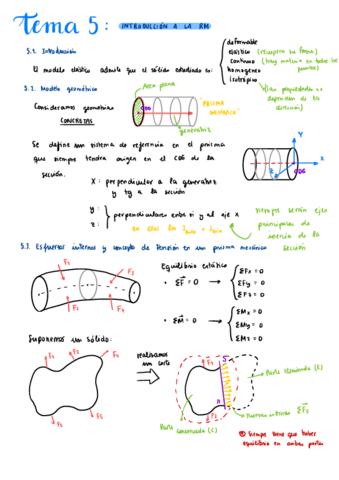 Tema 5: INTRODUCCIÓN A LA RM
5.1. Introducción
El modelo elástico admite que el sólido estudiado es:
deformable
elástico (recupera su forma)
continuo (hay materia en todos los puntos)
homogéneo
isotrópico
(las propiedades no dependen de la dirección)
5.2. Modelo geométrico
Consideramos geometrías
CONCRETAS
Área plana
CDG
PRISMA
MECÁNICO
generatriz
Se define un sistema de referencia en el prisma
que siempre tendrá origen en el CDG de la
sección.
Y
X
Z
CDG
X: perpendicular a la generatriz
y tg a la sección
y:
z:
perpendiculares entre sí y al eje x
siempre serán ejes
principales de
inercia de la
sección
5.3. Esfuerzos internos y concepto de tensión en un prisma mecánico
F1
F2
F3
Equilibrio estático
• ΣF = 0
ΣFx = 0
ΣFy = 0
ΣFz = 0
• ΣM = 0
ΣMx = 0
ΣMy = 0
ΣMz = 0
Suponemos un sólido:
realizamos
un corte
S
Parte eliminada (E)
Parte conservada (C)
Siempre tiene que haber
equilibrio en ambas partes